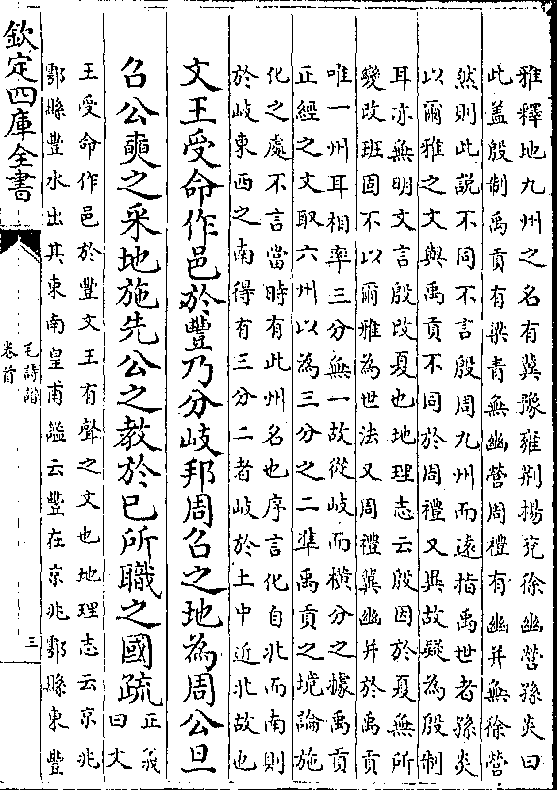 雅釋地九州之名有冀豫雍荆揚兖徐幽營孫炎曰
此蓋殷制禹貢有梁青無幽營周禮有幽并無徐營
然則此說不同不言殷周九州而遠指禹世者孫炎
以爾雅之文與禹貢不同於周禮又異故疑為殷制
耳亦無明文言殷改夏也地理志云殷因於夏無所
變改班固不以爾雅為世法又周禮冀幽并於禹貢
唯一州耳相率三分無一故從岐而横分之據禹貢
正經之文取六州以為三分之二準禹貢之境論施
化之處不言當時有此州名也序言化自北而南則
於岐東西之南得有三分二者岐於土中近北故也
文王受命作邑於豐乃分岐邦周召之地為周公旦
召公奭之采地施先公之教於已所職之國疏
正義
曰文
王受命作邑於豐文王有聲之文也地理志云京兆
鄠縣豐水出其東南皇甫謐云豐在京兆鄠縣東豐
欽定四庫全書
毛詩譜
卷首
三